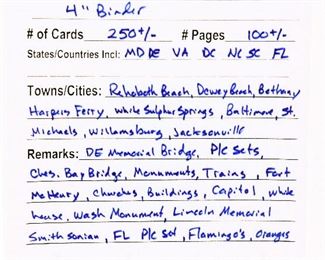 4" Binder
# of Cards 250+/- # Pages 100+/-
States/Countries Incl: MD DE VA DC NC SC FL
Towns/Cities: Rehoboth Beach, Dewey Beach, Bethany
Harpers Ferry, White Sulphur Springs, Baltimore, St.
Michaels, Williamsburg, Jacksonville
Remarks: DE Memorial Bridge, P/C Sets,
Ches. Bay Bridge, Monuments, Trains, Fort
McHenry, Churches, Buildings, Capitol, White
house, Wash Monument, Lincoln Memorial
Smithsonian, FL P/C Set, Flamingo's, Oranges